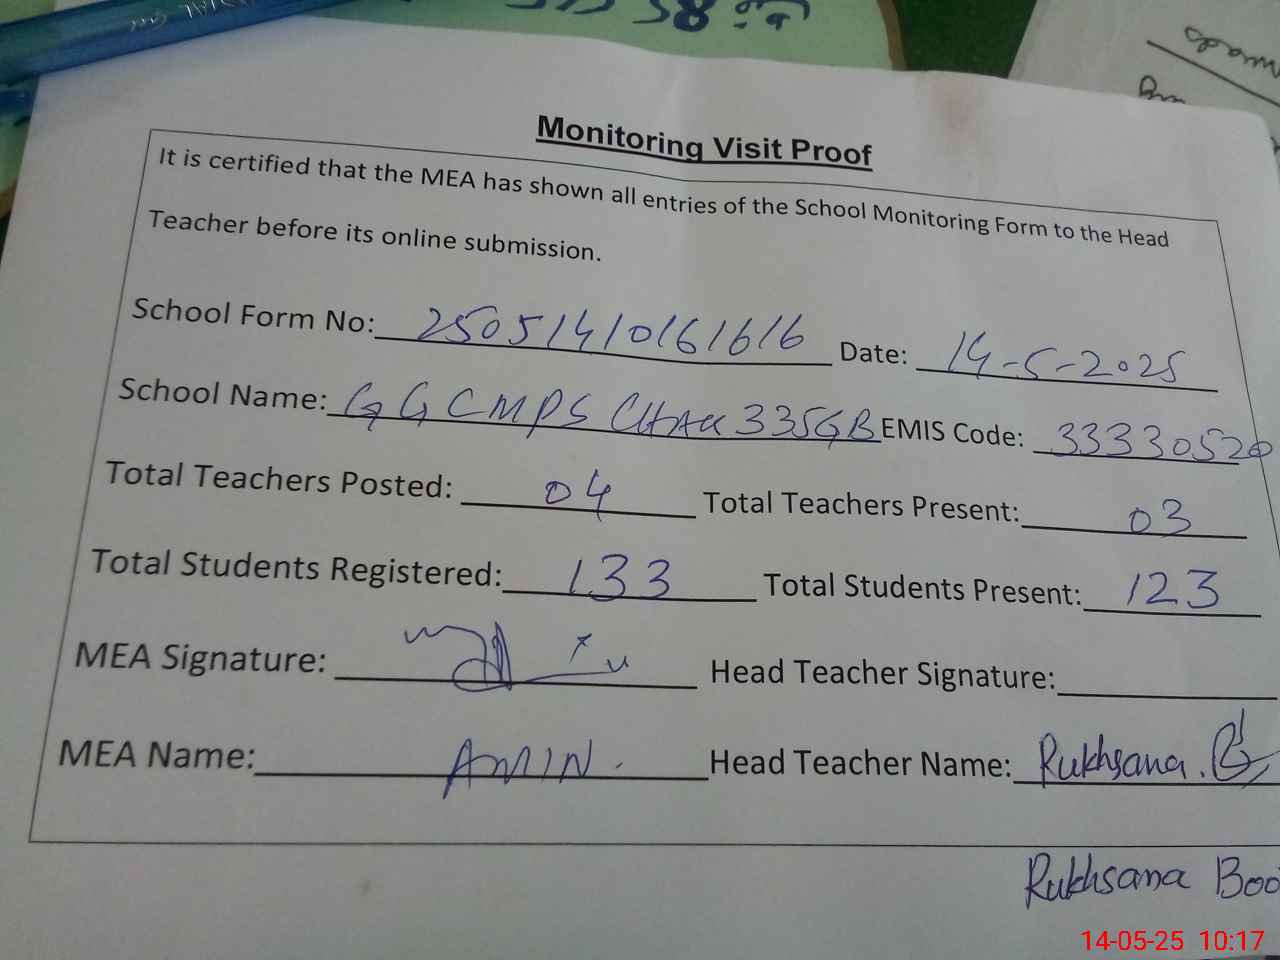 Monitoring Visit Proof
It is certified that the MEA has shown all entries of the School Monitoring Form to the Head
Teacher before its online submission.
School Form No: 25051410161616 Date: 14-5-2025
School Name: GGCMPS CHAK 335GB EMIS Code: 33330520
Total Teachers Posted: 04 Total Teachers Present: 03
Total Students Registered: 133 Total Students Present: 123
MEA Signature: Head Teacher Signature:
MEA Name: AMIN. Head Teacher Name: Rukhsana.B
Rukhsana Boo
14-05-25 10:17